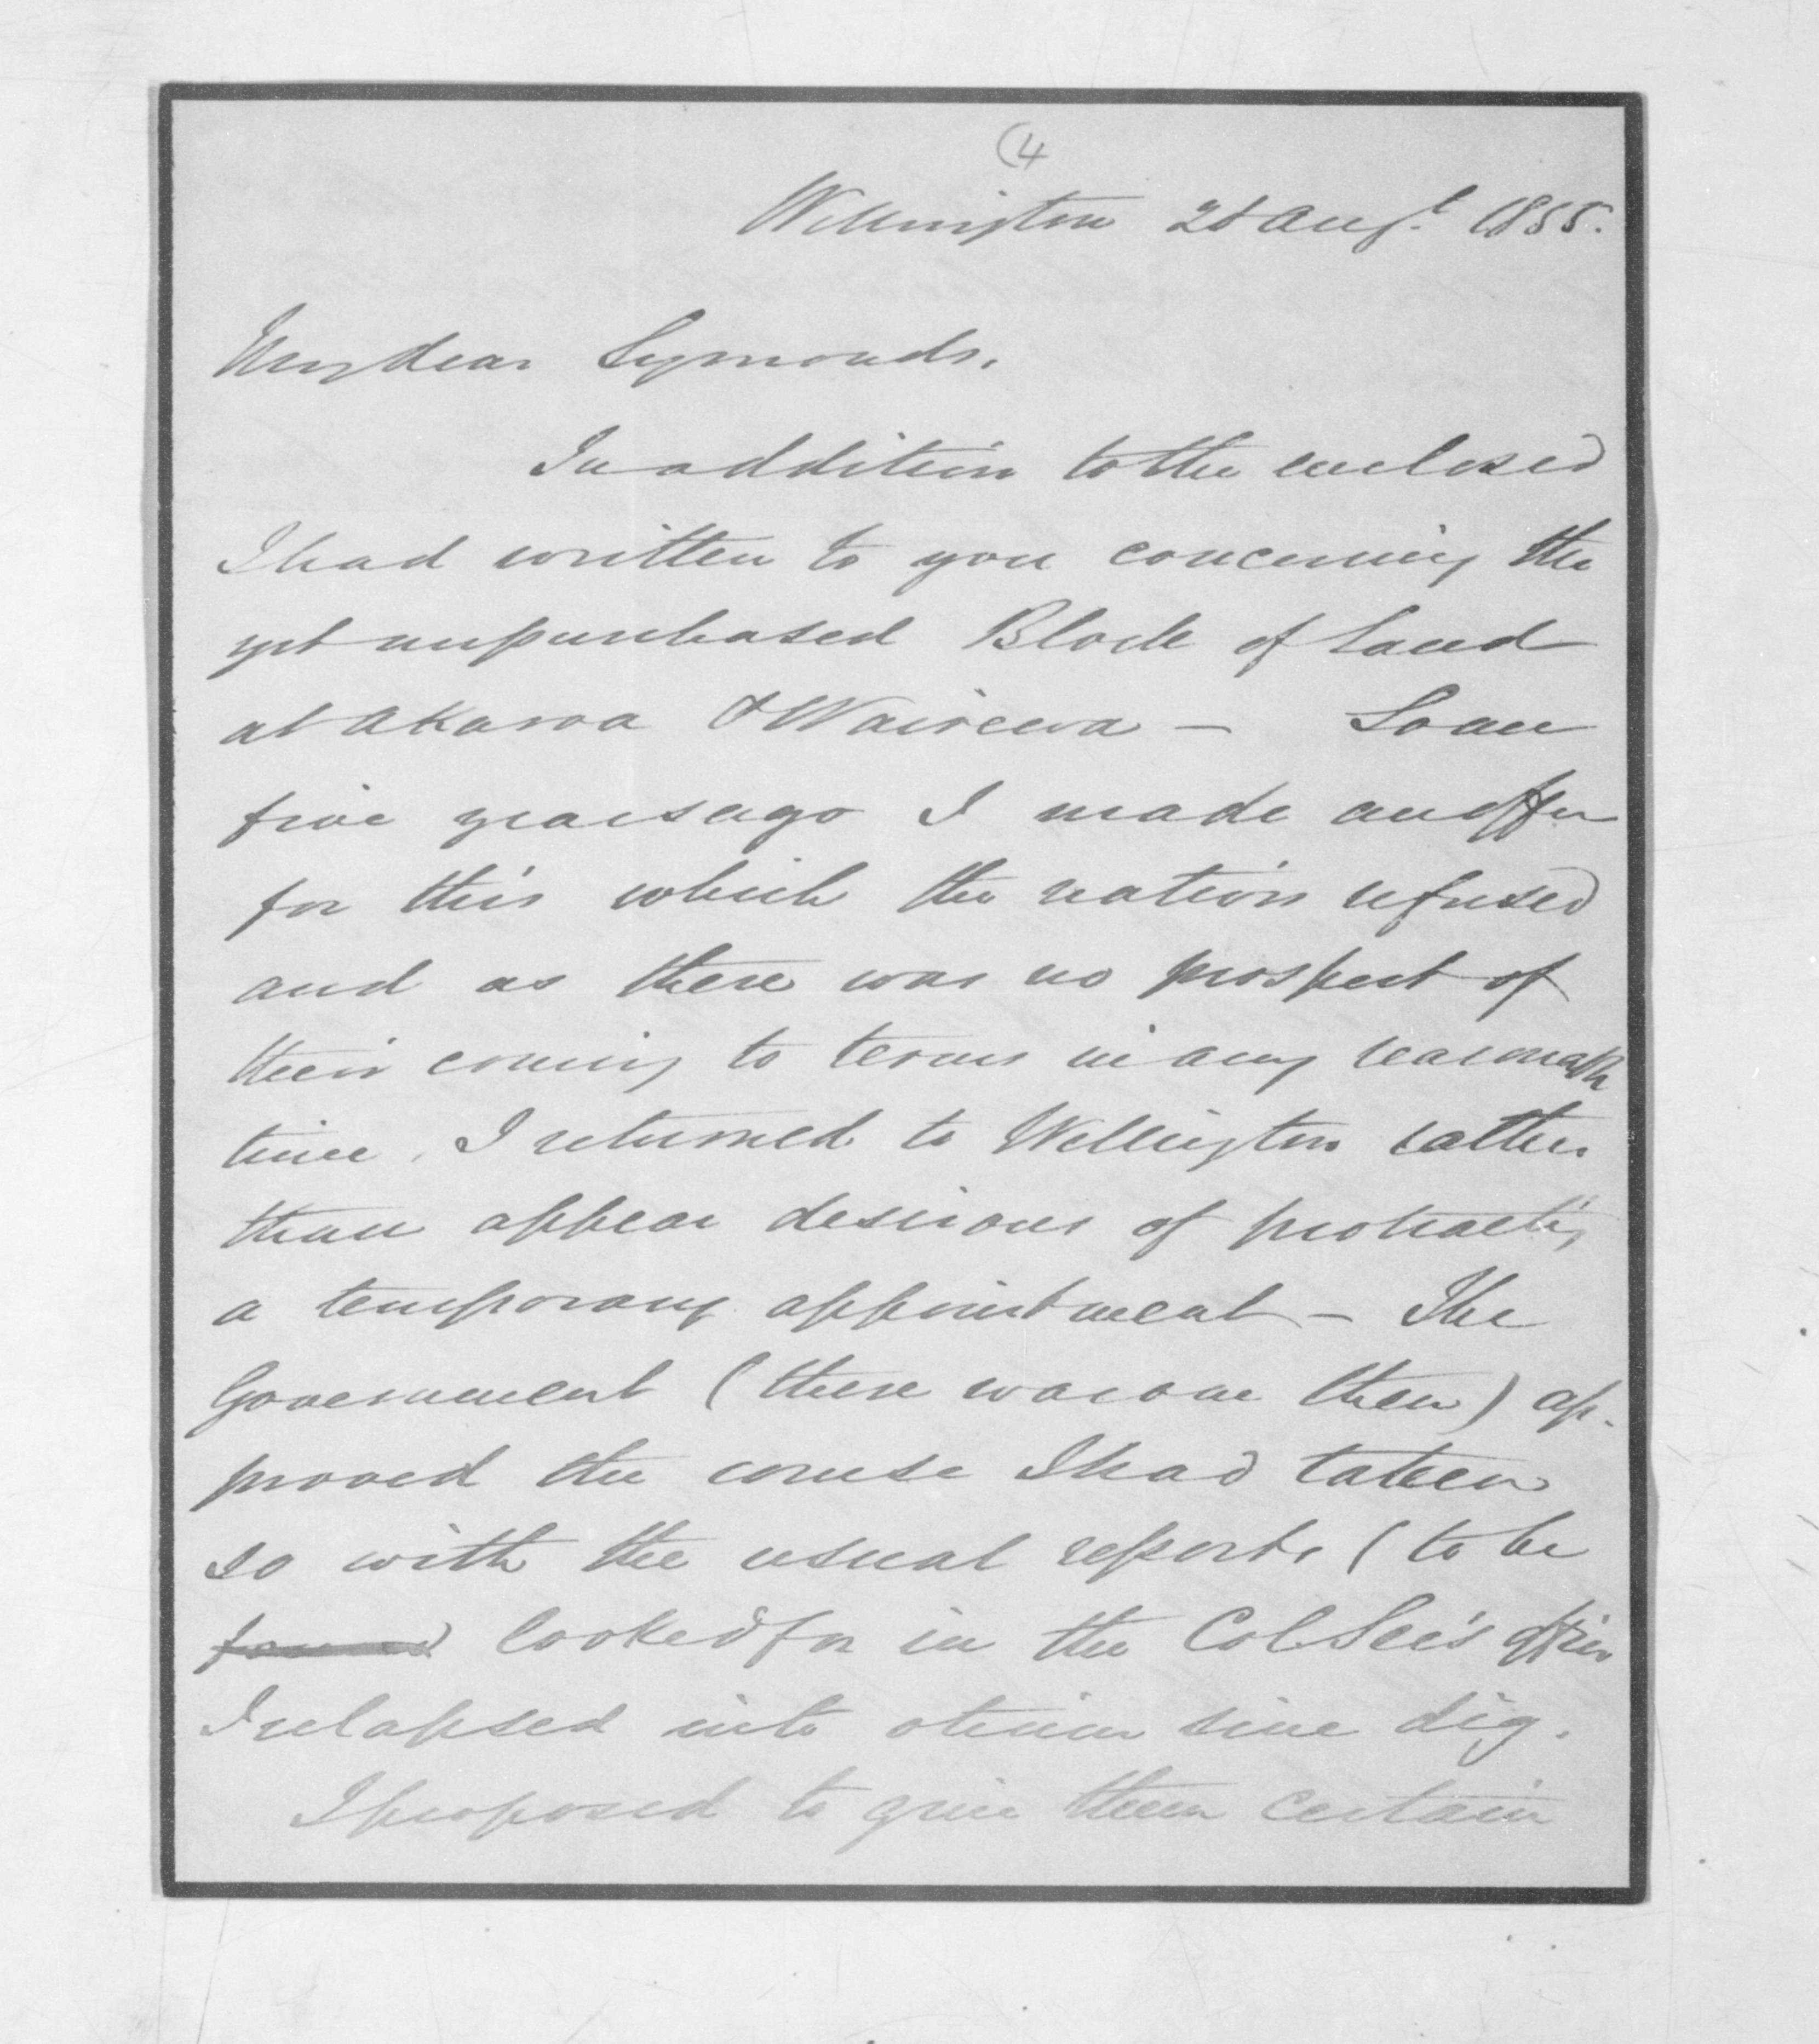 (4
Wellington 28 Augt. 1855.
My dear Symonds.
In addition to the enclosed
I had written to you concerning the
yet unpurchased Block of Land
at Akaroa & Wairewa — Some
five years ago I made an offer
for this which the natives refused
and as there was no prospect of
their coming to terms in any reasonable
time, I returned to Wellington rather
than appear desirous of protracting
a temporary appointment — The
Government (there was one then) ap-
proved the course I had taken
so with the usual reports (to be
found looked for in the Col Sec's office
I relapsed into otium sine dig.
I proposed to give them certain